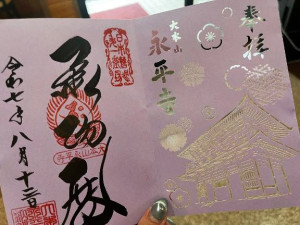 奉拝
大本山
永平寺
承陽殿
令和七年八月十三日